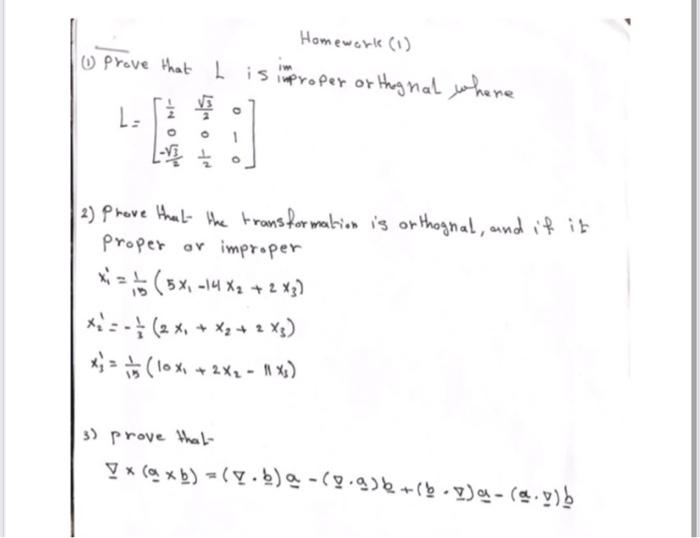 Homework (1)
(1) Prove that L is improper orthognal where
im
L = [ 1/2 √3/2 0
0 0 1
-√3/2 1/2 0 ]
2) Prove that the transformation is orthognal, and if it
proper or improper
x₁' = 1/15 (5x₁ - 14x₂ + 2x₃)
x₂' = -1/3 (2x₁ + x₂ + 2x₃)
x₃' = 1/15 (10x₁ + 2x₂ - 11x₃)
3) prove that
∇ × (a × b) = (∇ · b) a - (∇ · a) b + (b · ∇) a - (a · ∇) b